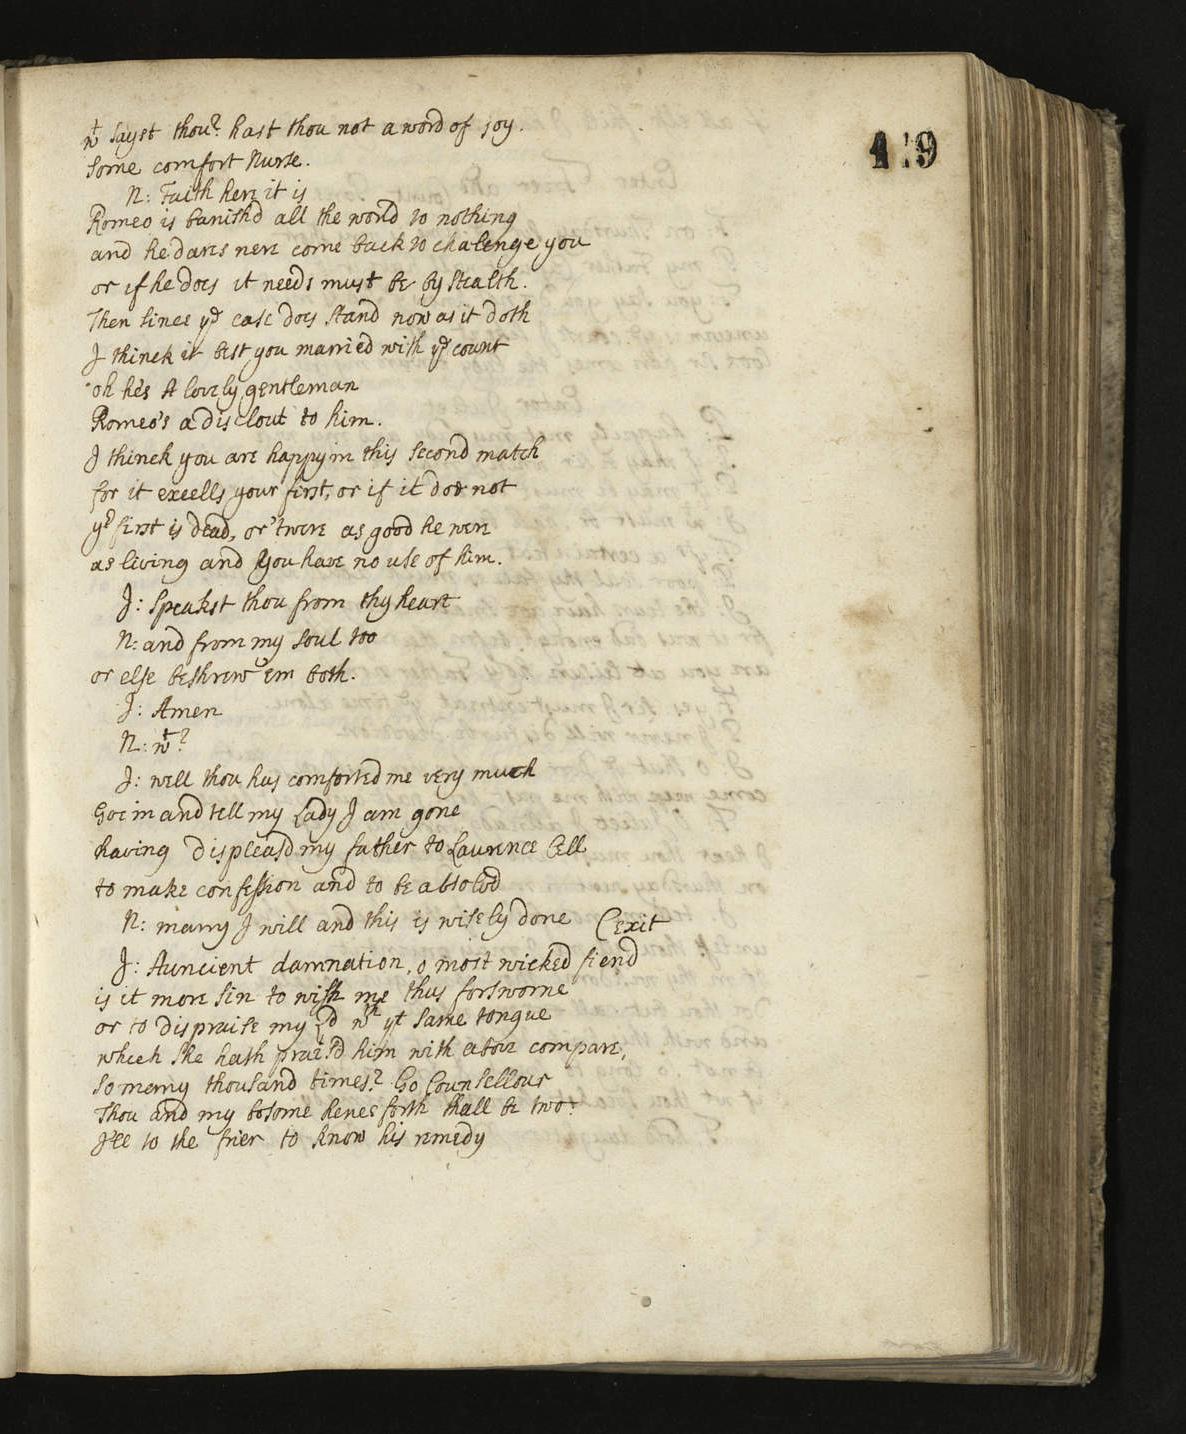 wt sayst thou? hast thou not a word of joy.
119
some comfort Nurse.
N: Faith here it is
Romeo is banishd all the world to nothing
and he dares nere come back to chalenge you
or if he does it needs must be by stealth.
Then since ye case does stand now as it doth
I thinck it best you married with ye count
oh he's A lovely gentleman
Romeo's a disclout to him.
I thinck you are happy in this second match
for it excells your first, or if it doe not
yr first is dead, or 'twere as good he were
as living and you have no use of him.
J: speakst thou from thy heart
N: and from my soul too
or else beshrew em both.
J: Amen
N: wt?
J: well thou has comforted me very much
Goe in and tell my Lady I am gone
having displeasd my father to Laurence Cell
to make confession and to be absolvd
N: marry I will and this is wisely done (exit
J: Auncient damnation, o most wicked fiend
is it more sin to wish me thus forsworne
or to dispraise my Ld wth yt same tongue
which she hath prais'd him with above compare,
so many thousand times? Go Counsellour
Thou and my bosome hence forth shall be two.
I'le to the frier to know his remedy